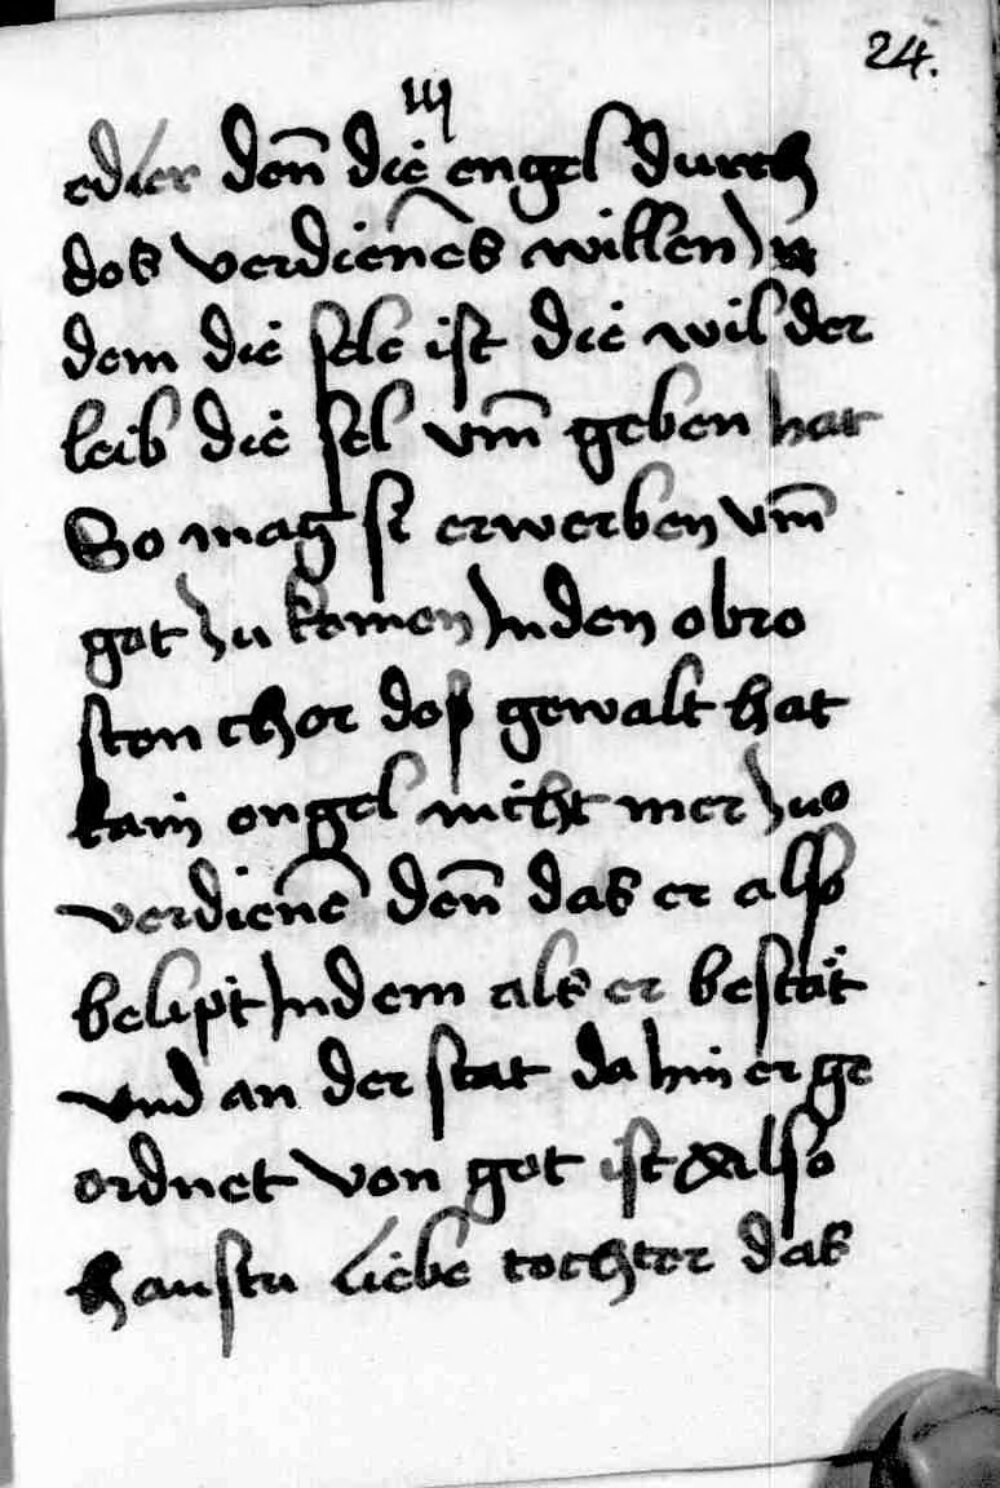 24.
iij
edler den̄ die engel durch
dos verdienēs willen zu
dem die sele ist die wil der
leib die sel vm̄ geben hat
So mag si erwerben vm̄
got zu komen Inden obro
sten chor doß gewalt hat
kain engel nicht mer zuo
verdienē den̄ das er also
belipt Indem als er bestät
vnd an der stat da hin er ge
ordnet von got ist Also
haustu liebe tochter das